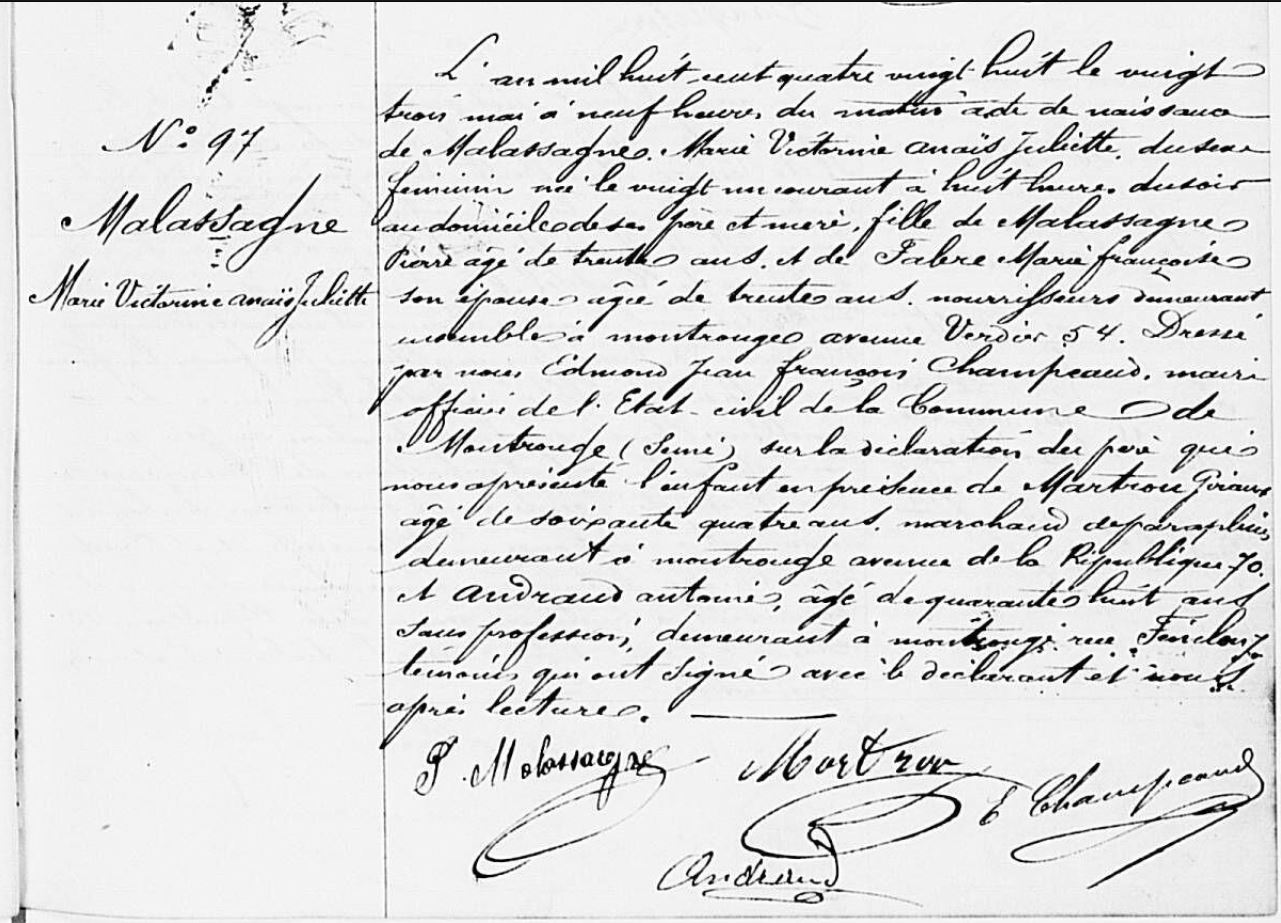 N.° 97
Malassagne
Marie Victorine anaïs Juliette
L'an mil huit cent quatre vingt huit le vingt
trois mai à neuf heures du matin acte de naissance
de Malassagne. Marie Victorine anaïs Juliette. du sexe
feminin née le vingt un courant à huit heures du soir
au domicile de ses père et mère, fille de Malassagne
Pierre âgé de trente ans. et de Fabre Marie françoise
son épouse âgée de trente ans. nourrisseurs demeurant
ensemble à montrouge avenue Verdier 54. Dressé
par nous Edmond Jean françois Champeaud. maire
officier de l'Etat-civil de la Commune de
Montrouge (Seine) sur la déclaration du père qui
nous a présenté l'enfant en présence de Martrou
âgé de soixante quatre ans. marchand de parapluies,
demeurant à montrouge avenue de la République 70.
et andraud antoine, âgé de quarante huit ans
sans profession, demeurant à montrouge rue Fénelon 7
témoins qui ont signé avec le déclarant et nous
après lecture.
P. Malassagne Martrou
E Champeaud
Andraud